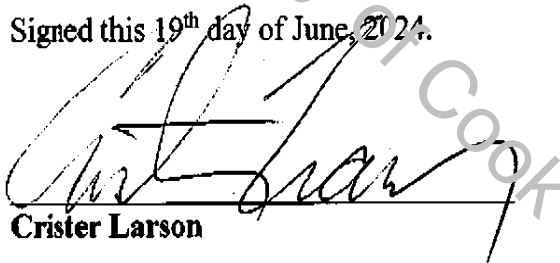 Signed this 19th day of June, 2024.
of Cook
Crister Larson